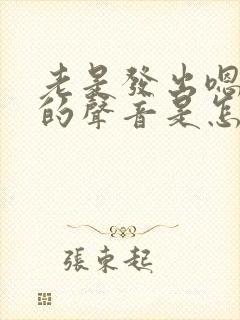 老是發出嗯
的聲音是怎
張東起